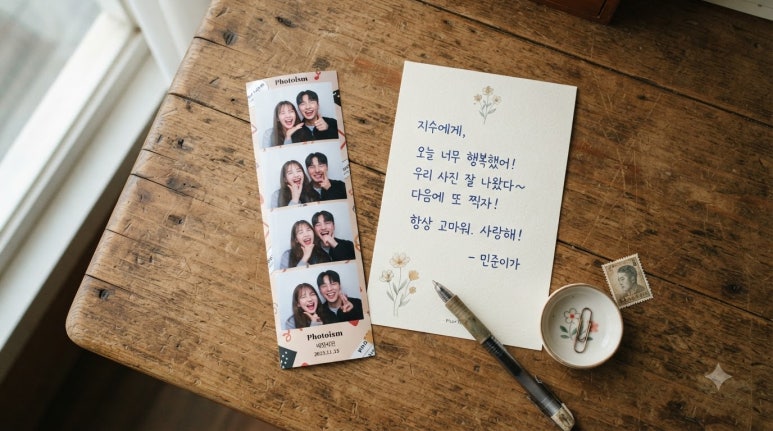 Photoism
Photoism
2023.11.15
지수에게,
오늘 너무 행복했어!
우리 사진 잘 나왔다~
다음에 또 찍자!
항상 고마워. 사랑해!
- 민준이가